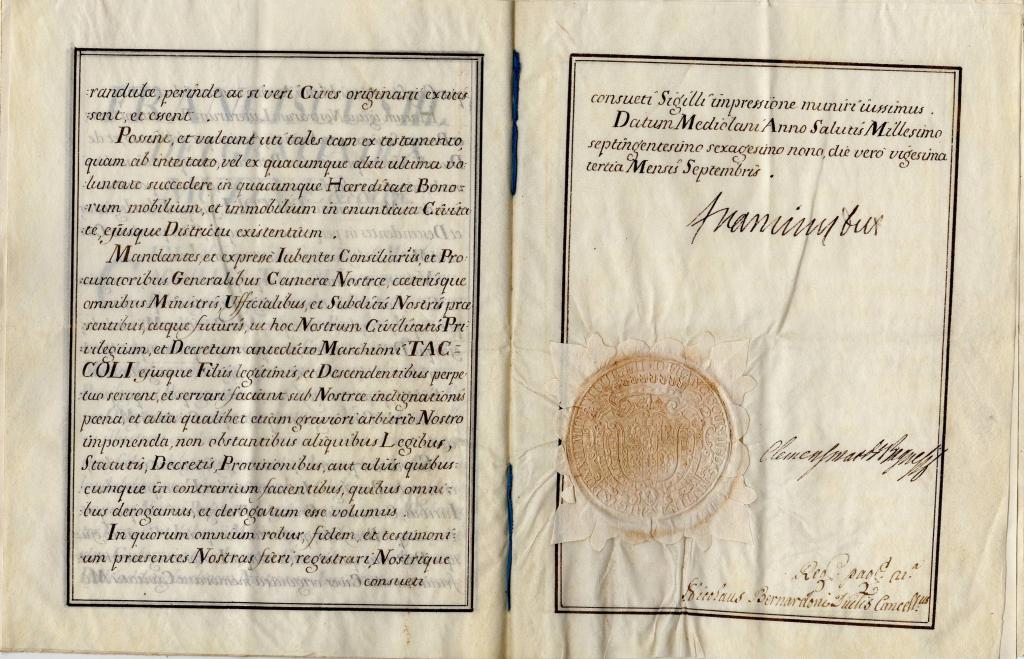 randulæ perinde ac si veri Cives originarii extitis
sent, et essent.
Possint, et valeant uti tales tam ex testamento,
quam ab intestato, vel ex quacumque alia ultima vo
luntate succedere in quacumque Hæreditate Bono-
rum mobilium, et immobilium in enuntiata Civita
te, ejusque Districtu existentium.
Mandantes, et expresse Iubentes Consiliariis, et Pro-
curatoribus Generalibus Cameræ Nostræ, cæterisque
omnibus Ministris, Ufficialibus, et Subditis Nostris præ
sentibus, atque futuris, ut hoc Nostrum Civilitatis Pri-
vilegium, et Decretum antedicto Marchioni TAC-
COLI, ejusque Filiis legitimis, et Descendentibus perpe
tuo servent, et servari faciant sub Nostræ indignationis
pœna, et alia qualibet etiam graviori arbitrio Nostro
imponenda, non obstantibus aliquibus Legibus,
Statutis, Decretis, Provisionibus, aut aliis quibus-
cumque in contrarium facientibus, quibus omni-
bus derogamus, et derogatum esse volumus.
In quorum omnium robur, fidem, et testimoni-
um præsentes Nostras fieri, registrari, Nostrique
consueti
consueti Sigilli impressione muniri iussimus.
Datum Mediolani Anno Salutis Millesimo
septingentesimo sexagesimo nono, die vero vigesima
tertia Mensis Septembris.
Nicolaus Bernardoni